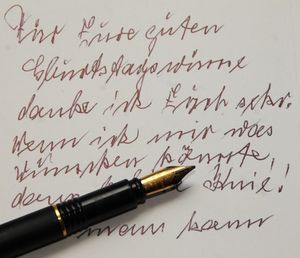 Für Eure guten
Geburtstagswünsche
danke ich Euch sehr.
Wenn ich mir was
wünschen könnte,
dann Knie!
wenn kann